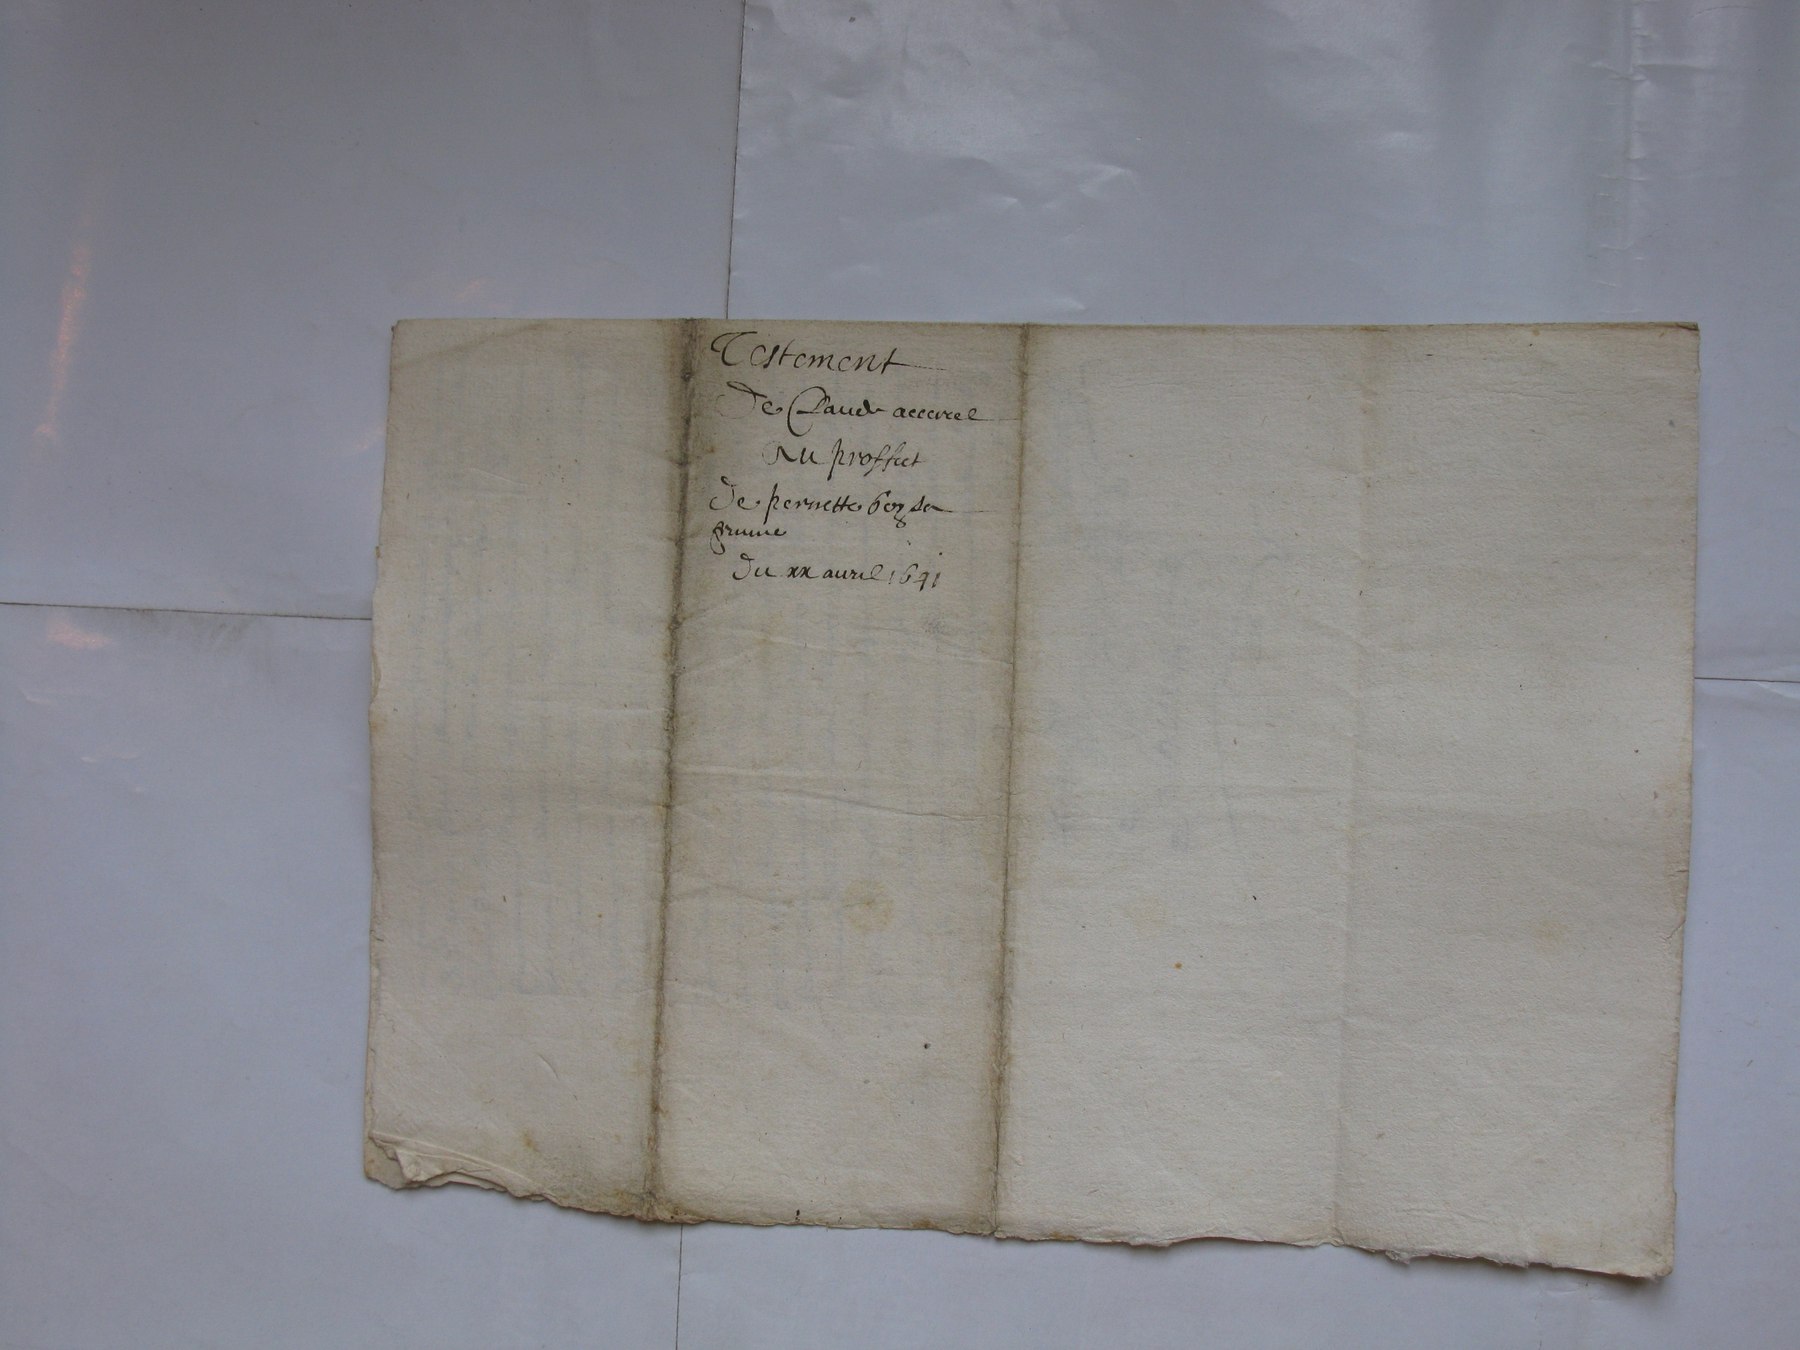 Testement
De Claude accarel
Au proffict
De pernette
femme
Du xx auril 1641